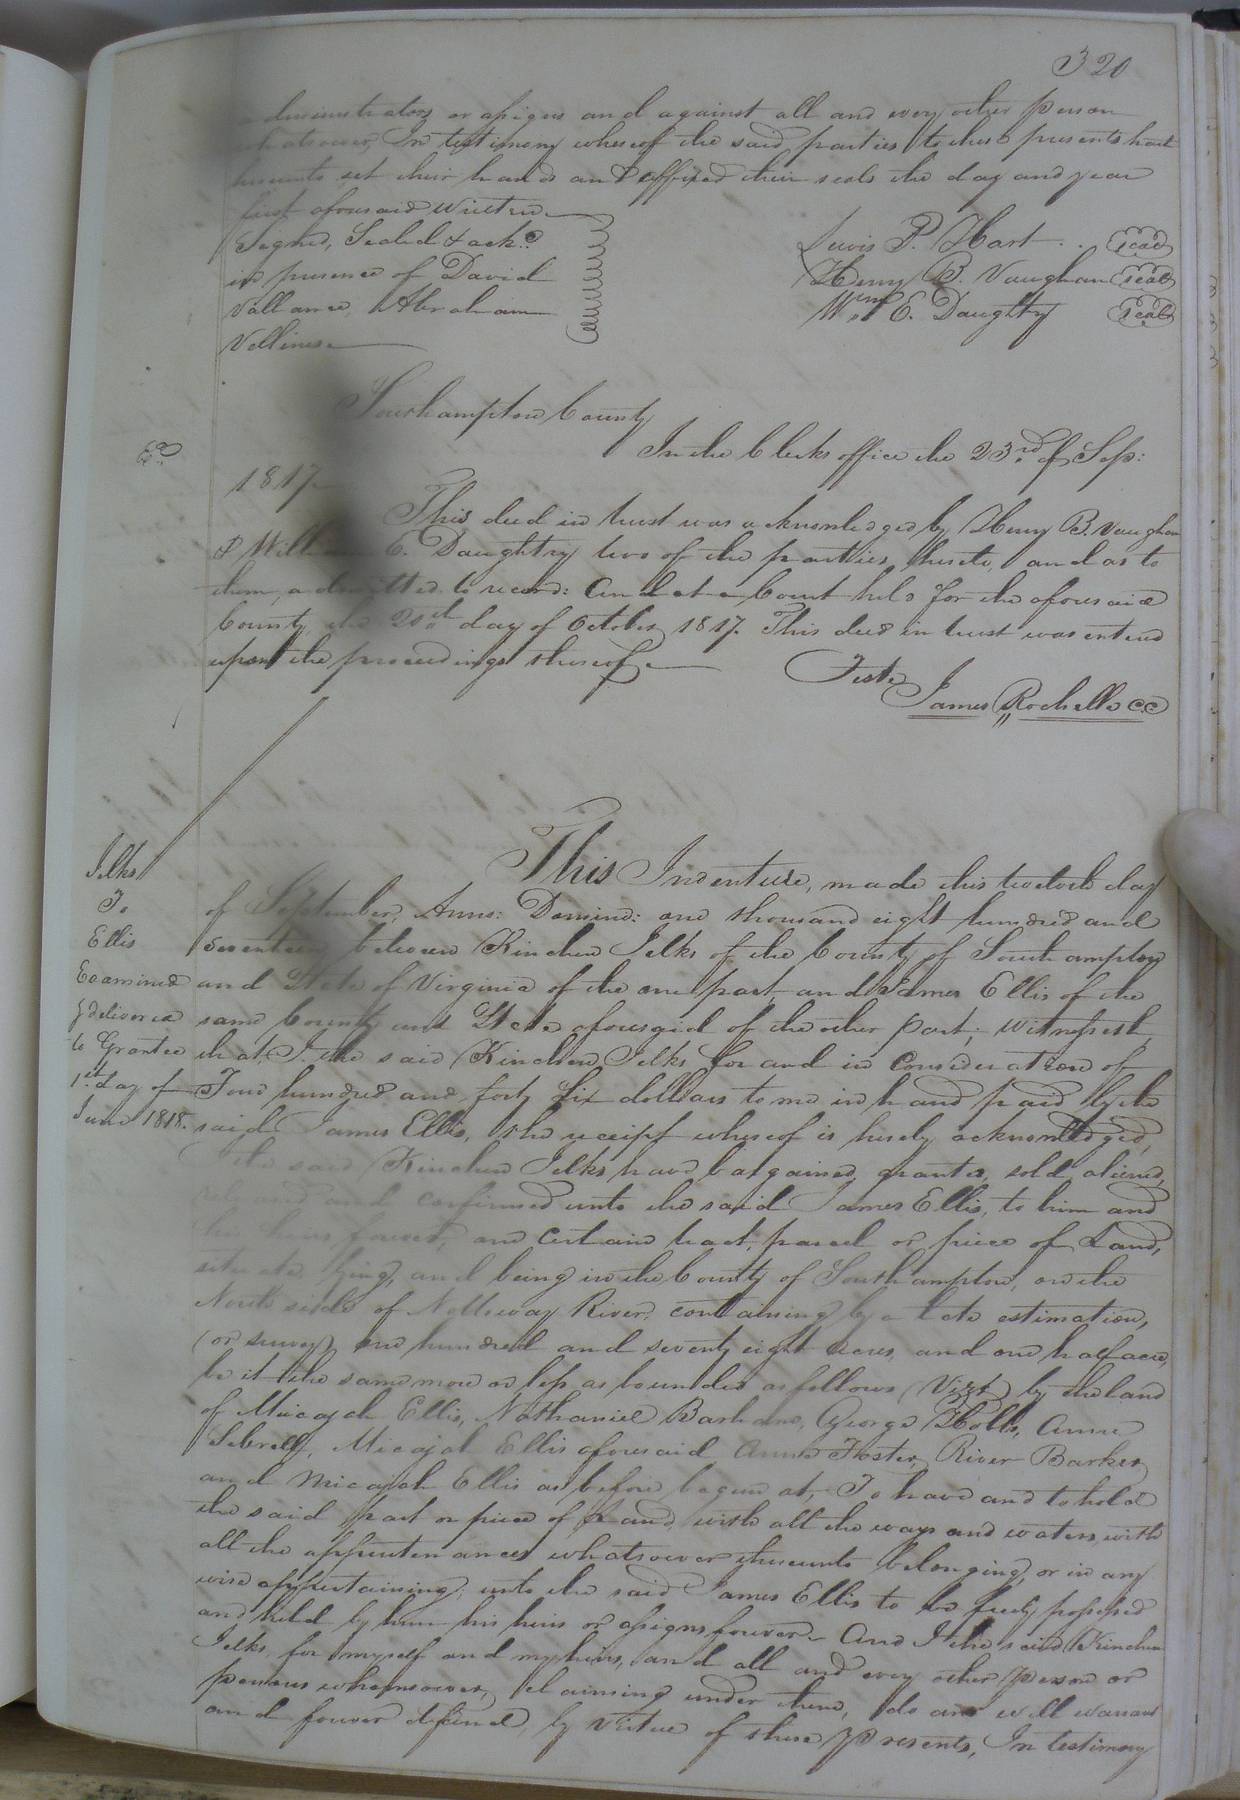 320
administrators or assigns and against all and every other person
whatsoever, In testimony whereof the said parties to these presents have
hereunto set their hands and affixed their seals the day and year
first aforesaid written
Signed, Sealed & ackd.
in presence of David
Vallance, Abraham
Vellines
Lewis P. Hart . . seal
Henry B. Vaughan seal
Wm. E. Daughtry seal
Southampton County
In the Clerks office the 23rd of Sep:
Ed.
1817
This deed in trust was acknowledged by Henry B. Vaughan
& William E. Daughtry two of the parties hereto, and as to
them, admitted to record: And at a Court held for the aforesaid
County, the day of October 1817. This deed in trust was entered
upon the proceedings thereof
Teste
James Rochelle CC
Jelks
To
Ellis
Examined
& delivered
to Grantee
1st. day of
June 1818.
This Indenture, made this twelvth day
of September, Anno: Domino: one thousand eight hundred and
seventeen between Kinchen Jelks of the County of Southampton
and State of Virginia of the one part, and James Ellis of the
same County and State aforesaid of the other part; Witnesseth,
that I the said Kinchen Jelks for and in Consideration of
Four hundred and forty six dollars to me in hand paid by the
said James Ellis, the receipt whereof is hereby acknowledged,
the said Kinchen Jelks have bargained, granted, sold, aliened,
released and confirmed unto the said James Ellis, to him and
his heirs forever, one certain tract, parcel or piece of Land,
situate, lying, and being in the County of Southampton, on the
North side of Nottoway River, containing by a late estimation,
(or survey) one hundred and seventy eight acres, and one half acre,
be it the same more or less, as bounded as follows (Vizt) by the land
of Micajah Ellis, Nathaniel Barham, George Holts, Anne
Sebrell, Micajah Ellis aforesaid Anne Foster, River Barker
and Micajah Ellis as before begun at, To have and to hold
the said part or piece of Land, with all the ways and waters, with
all the appurtenances whatsoever thereunto belonging, or in any
wise appertaining, unto the said James Ellis to be freely possessed
and held by him his heirs or assigns forever And I the said Kinchen
Jelks, for myself and my heirs, and all and every other person or
persons whomsoever, claiming under them, do and will warrant
and forever defend, by virtue of these presents, In testimony